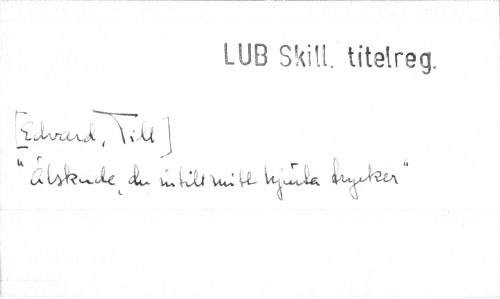 LUB Skill. titelreg.
[Edvard, Till]
"Älskade, du intill mitt hjerta trycker"